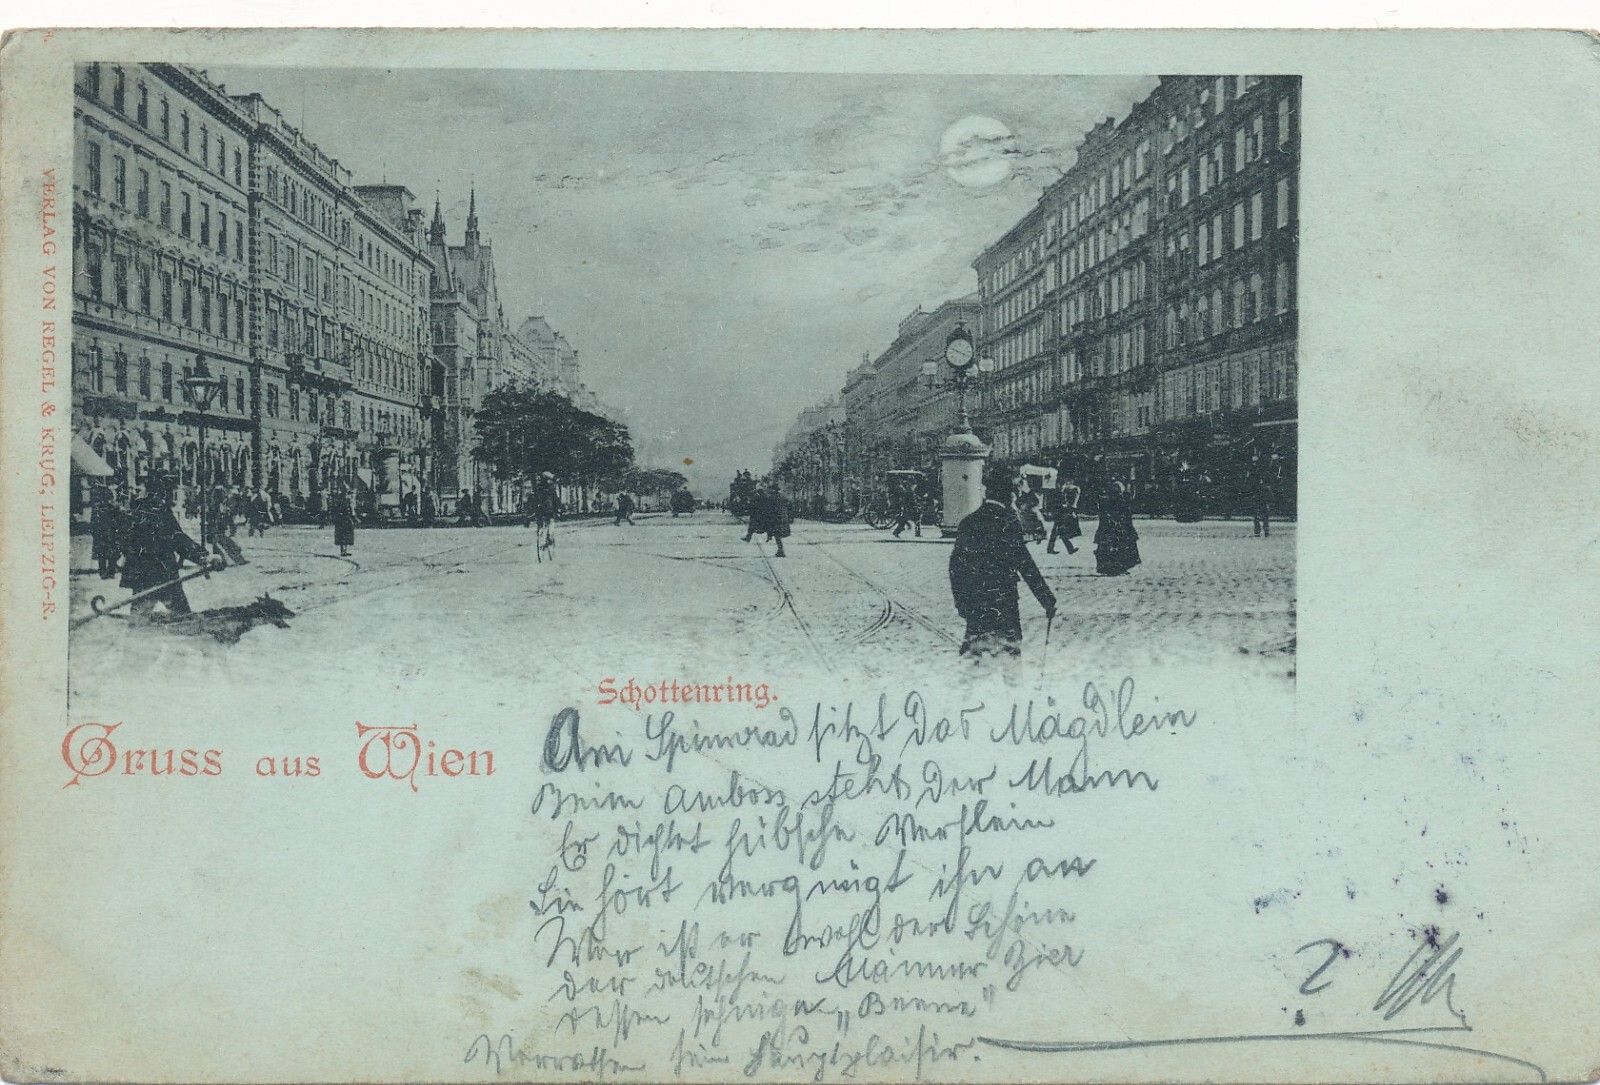 VERLAG VON REGEL & KRUG; LEIPZIG-R.
Schottenring.
Gruss aus Wien
Am Spinnrad sitzt das Mägdlein
Beim Amboss steht der Mann
Er dichtet hübsche Verslein
Sie hört vergnügt ihn an
Wer ist er wohl der Schöne
der deutschen Männer Zier
dessen sehnige „Beene"
Verrathen sein Hauptplaisir.
?